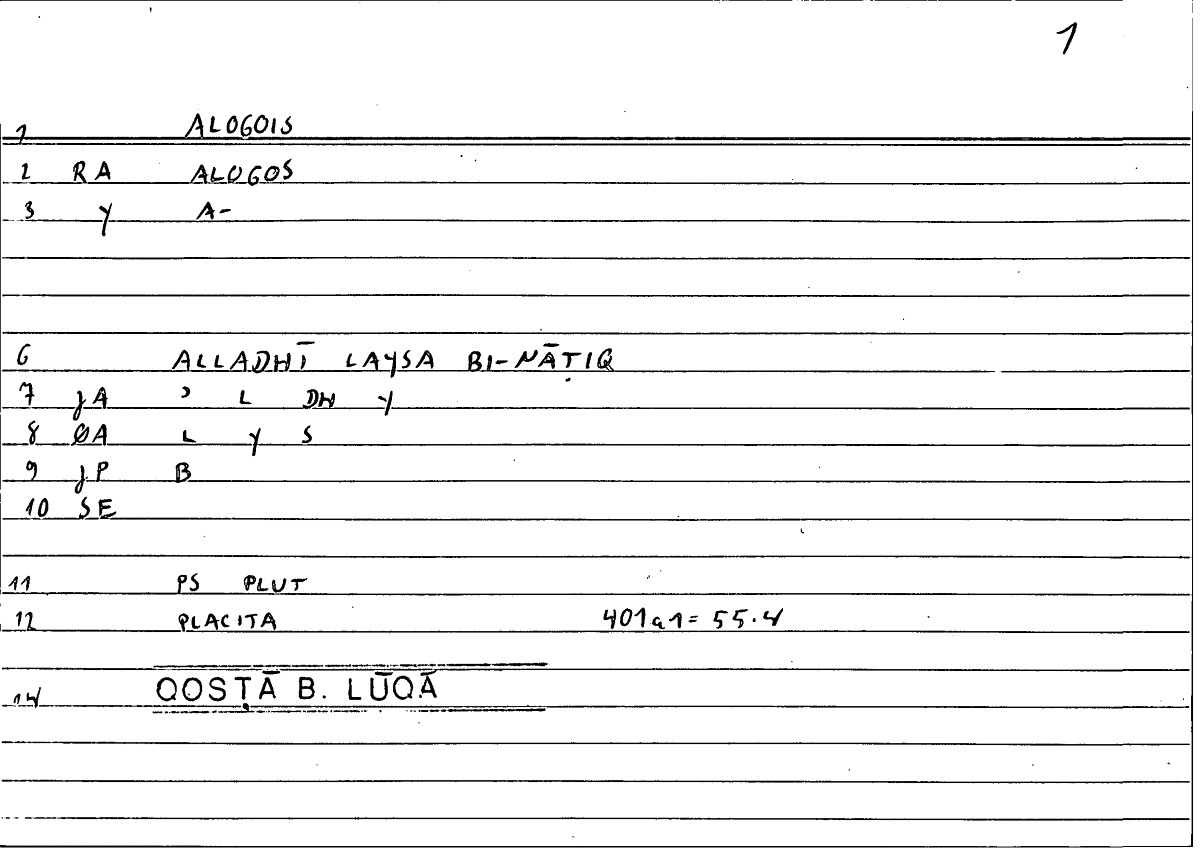 1
1 ALOGOIS
2 RA ALOGOS
3 Y A-
6 ALLADHĪ LAYSA BI-NĀṬIQ
7 JA ʾ L DH Y
8 ØA L Y S
9 JP B
10 SE
11 PS PLUT
12 PLACITA 401a1= 55.4
14 QOSṬĀ B. LŪQĀ